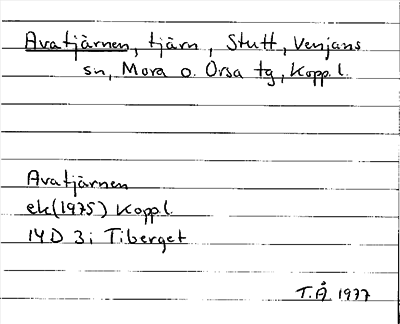 Avatjärnen, tjärn, Stutt, Venjans
sn, Mora o. Orsa tg, Kopp. l.
Avatjärnen
ek(1975) Kopp l.
14D 3i Tiberget
T.Å 1977